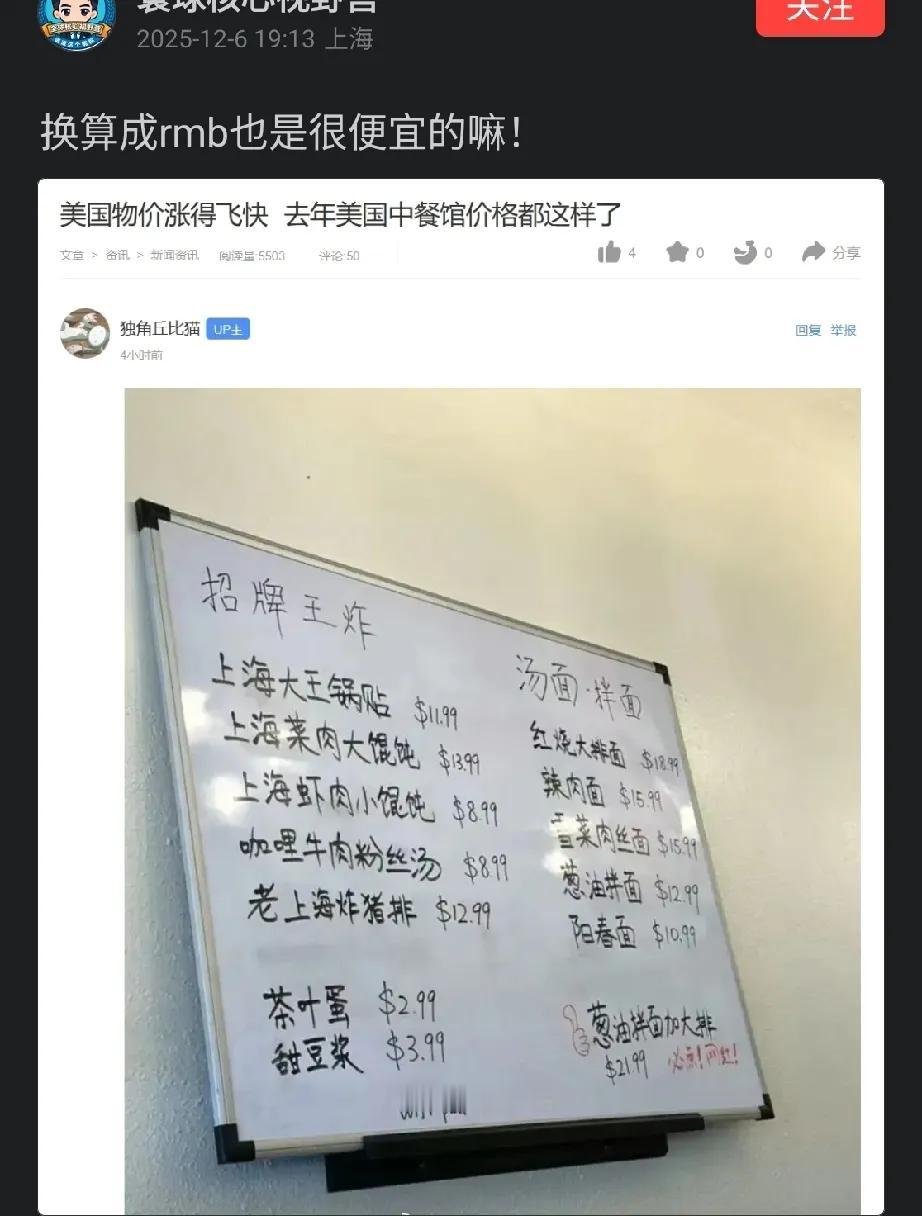 寰球核心视野官
2025-12-6 19:13 上海
关注
换算成rmb也是很便宜的嘛！
美国物价涨得飞快 去年美国中餐馆价格都这样了
文章 > 资讯 > 新闻资讯 阅读量:5503 评论:50
4 0 0 分享
独角丘比猫 UP主
回复 举报
4小时前
招牌王炸
上海大王锅贴 $11.99
上海菜肉大馄饨 $13.99
上海虾肉小馄饨 $8.99
咖哩牛肉粉丝汤 $8.99
老上海炸猪排 $12.99
茶叶蛋 $2.99
甜豆浆 $3.99
汤面·拌面
红烧大排面 $18.99
辣肉面 $15.99
雪菜肉丝面 $15.99
葱油拌面 $12.99
阳春面 $10.99
葱油拌面加大排
$21.99 必点!网红!